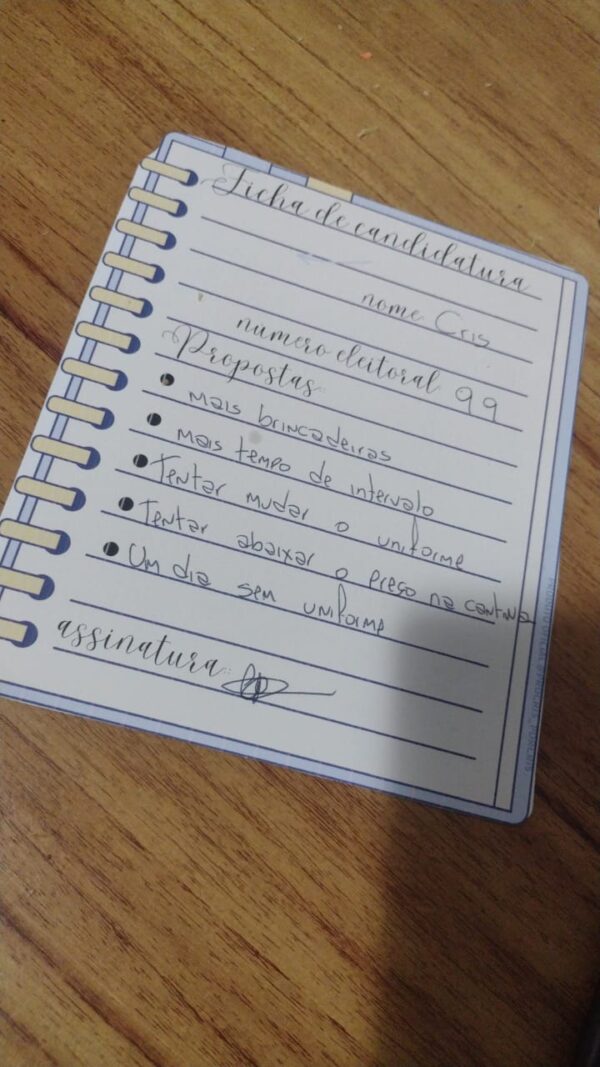 Ficha de candidatura
nome Cris
numero eleitoral 99
Propostas:
• mais brincadeiras
• mais tempo de intervalo
• Tentar mudar o uniforme
• Tentar abaixar o preço na cantina
• Um dia sem uniforme
assinatura: